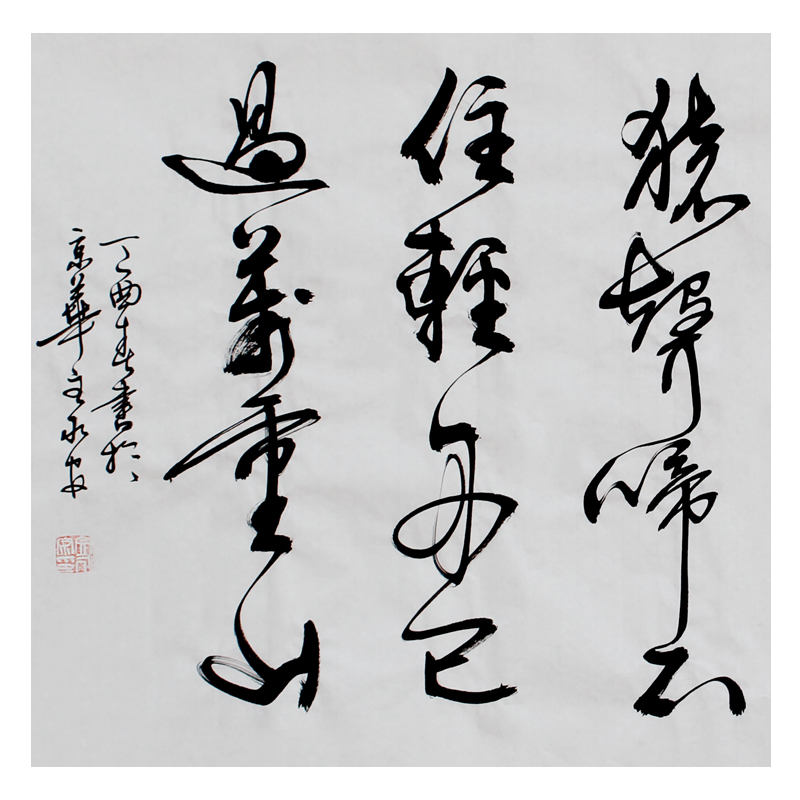 猿聲啼不
住輕舟已
過萬重山
丁酉春書於
京華